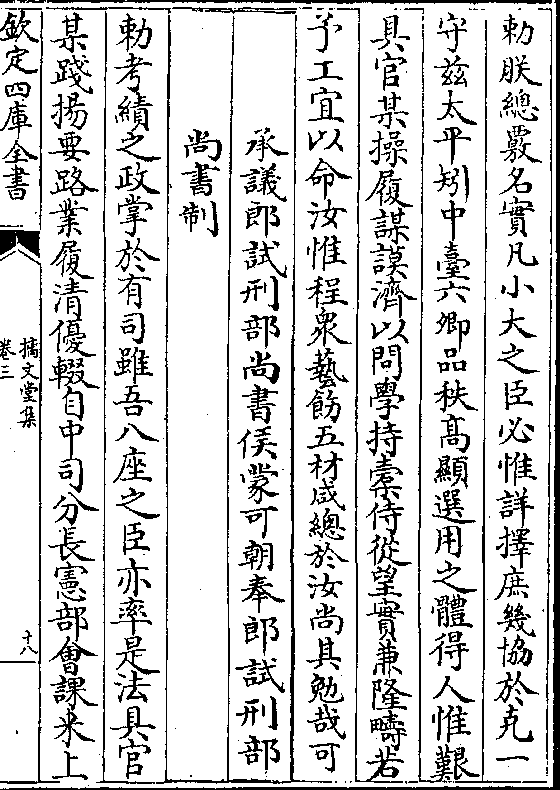 勅朕總覈名實凡小大之臣必惟詳擇庶幾協於克一
守兹太平矧中臺六卿品秩髙顯選用之體得人惟艱
具官某操履謀謨濟以問學持橐侍從望實兼隆疇若
予工宜以命汝惟程衆藝飭五材咸總於汝尚其勉哉可
承議郎試刑部尚書侯蒙可朝奉郎試刑部
尚書制
勅考績之政掌於有司雖吾八座之臣亦率是法具官
某踐揚要路業履清優輟自中司分長憲部會課来上
欽定四庫全書
摛文堂集
卷三
十八